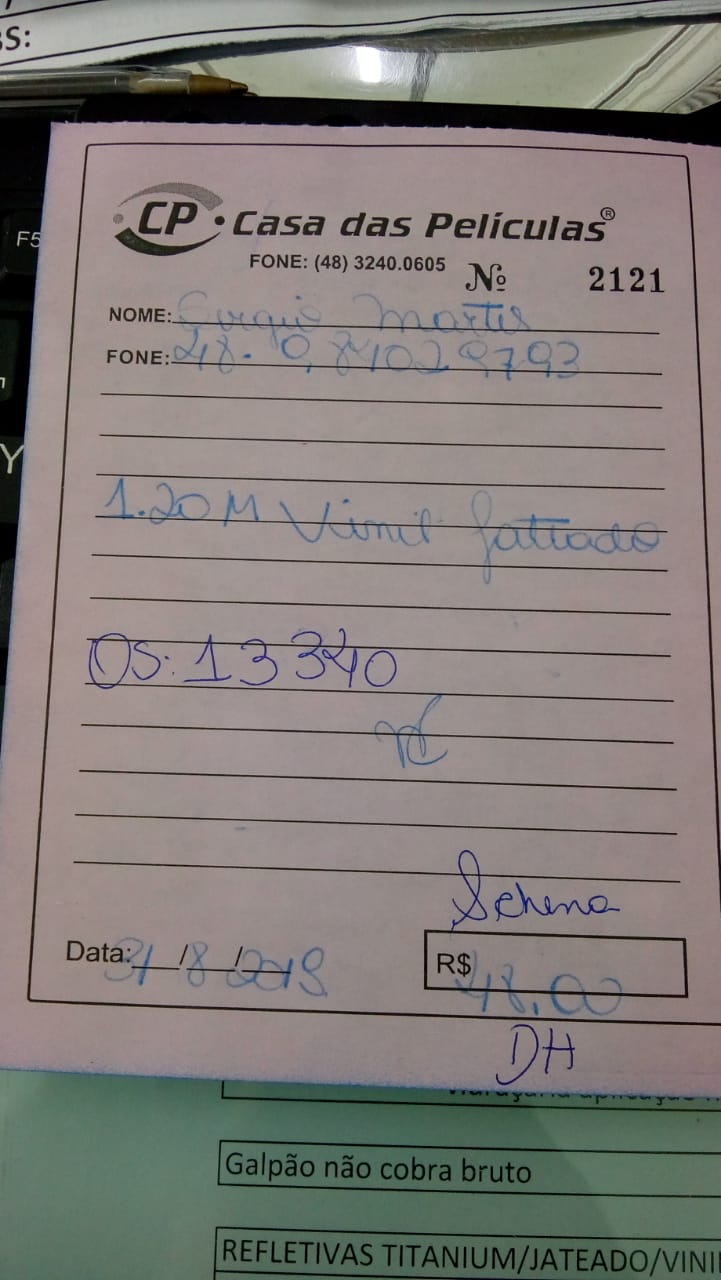 BS:
F5
Y
CP Casa das Películas®
FONE: (48) 3240.0605 Nº 2121
NOME: Sergio Martis
FONE: 48. 9,84029,793
1.20 M Vinil Jattado
OS: 13340
Schena
Data: 31/8/2018
R$ 48,00
DH
Galpão não cobra bruto
REFLETIVAS TITANIUM/JATEADO/VINI